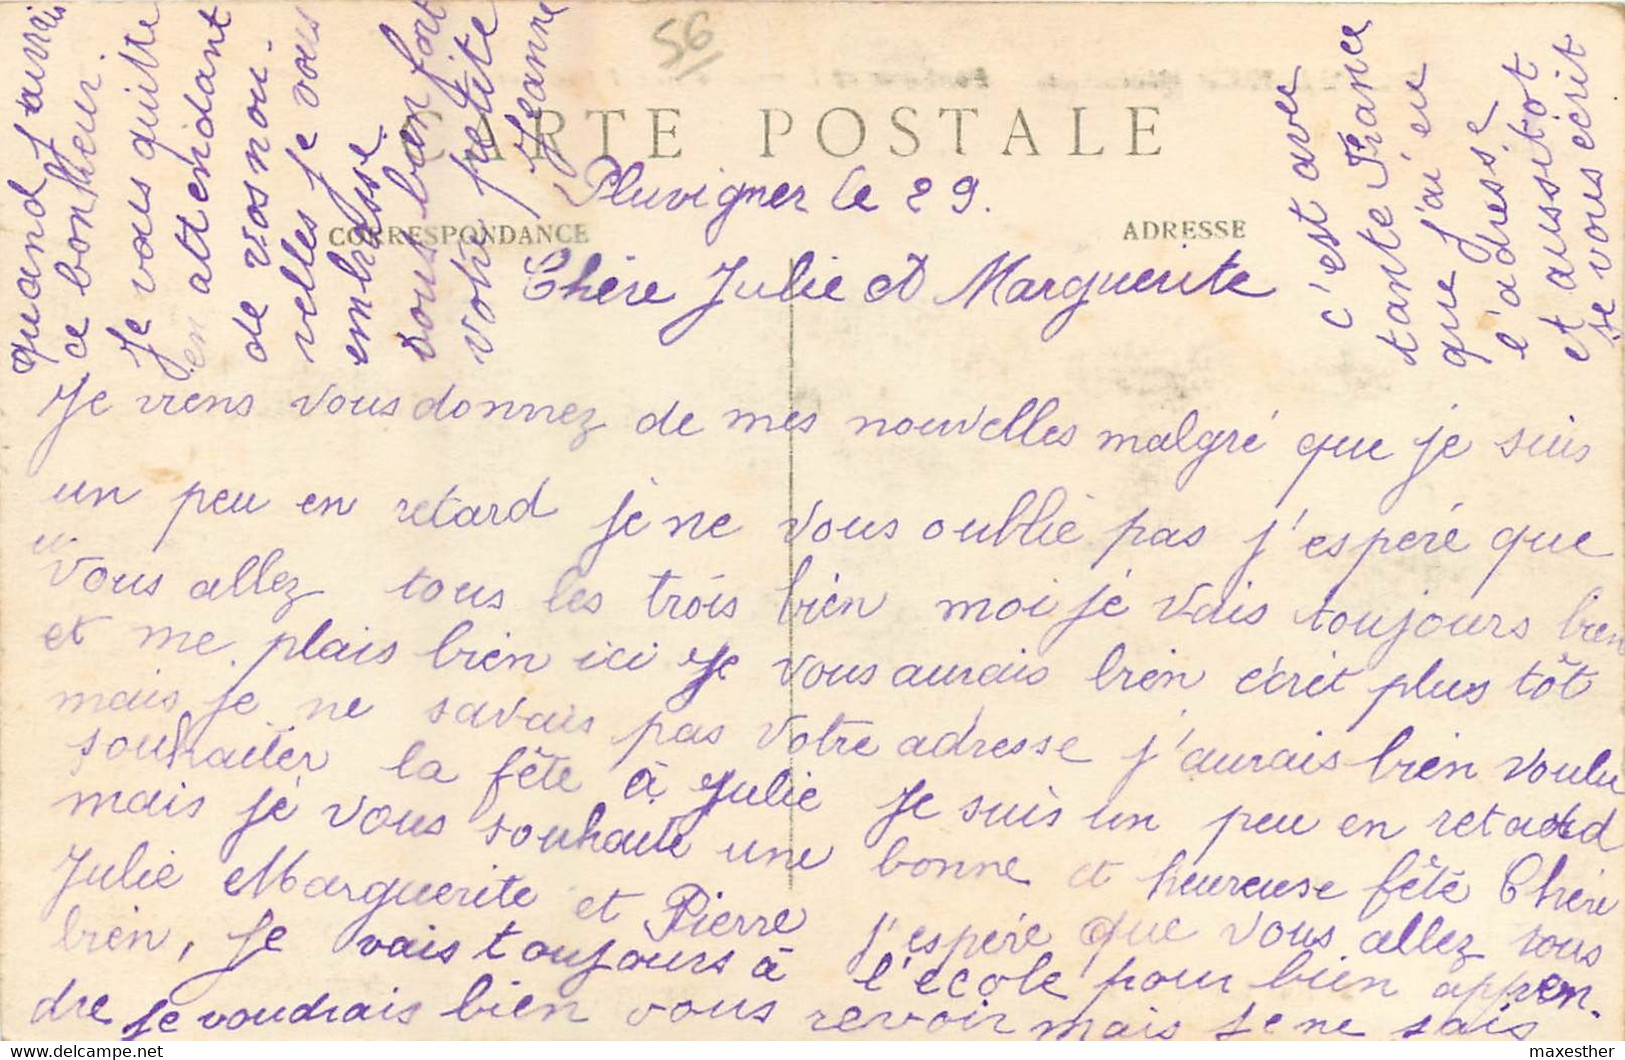 56
CARTE POSTALE
Pluvigner le 29.
CORRESPONDANCE
ADRESSE
Chére Julie et Marguerite
Je viens vous donnez de mes nouvelles malgré que je suis
un peu en retard je ne vous oublie pas j'espéré que
vous allez tous les trois bien moi je vais toujours bien
et me plais bien ici je vous aurais bien écrit plus tôt
mais je ne savais pas votre adresse j'aurais bien voulu
souhaiter la fête à Julie je suis un peu en retard
mais je vous souhaite une bonne et heureuse fête Chére
Julie Marguerite et Pierre j'espére que vous allez tous
bien, je vais toujours à l'école pour bien appren-
dre je voudrais bien vous revoir mais je ne sais
quand j'aurais
ce bonheur.
Je vous quitte
en attendant
de vos nou-
velles je vous
embrasse
tous bien fort
votre petite
Jeanne
c'est avec
tante France
que j'ai eu
l'adresse
et aussitot
je vous écrit
maxesther